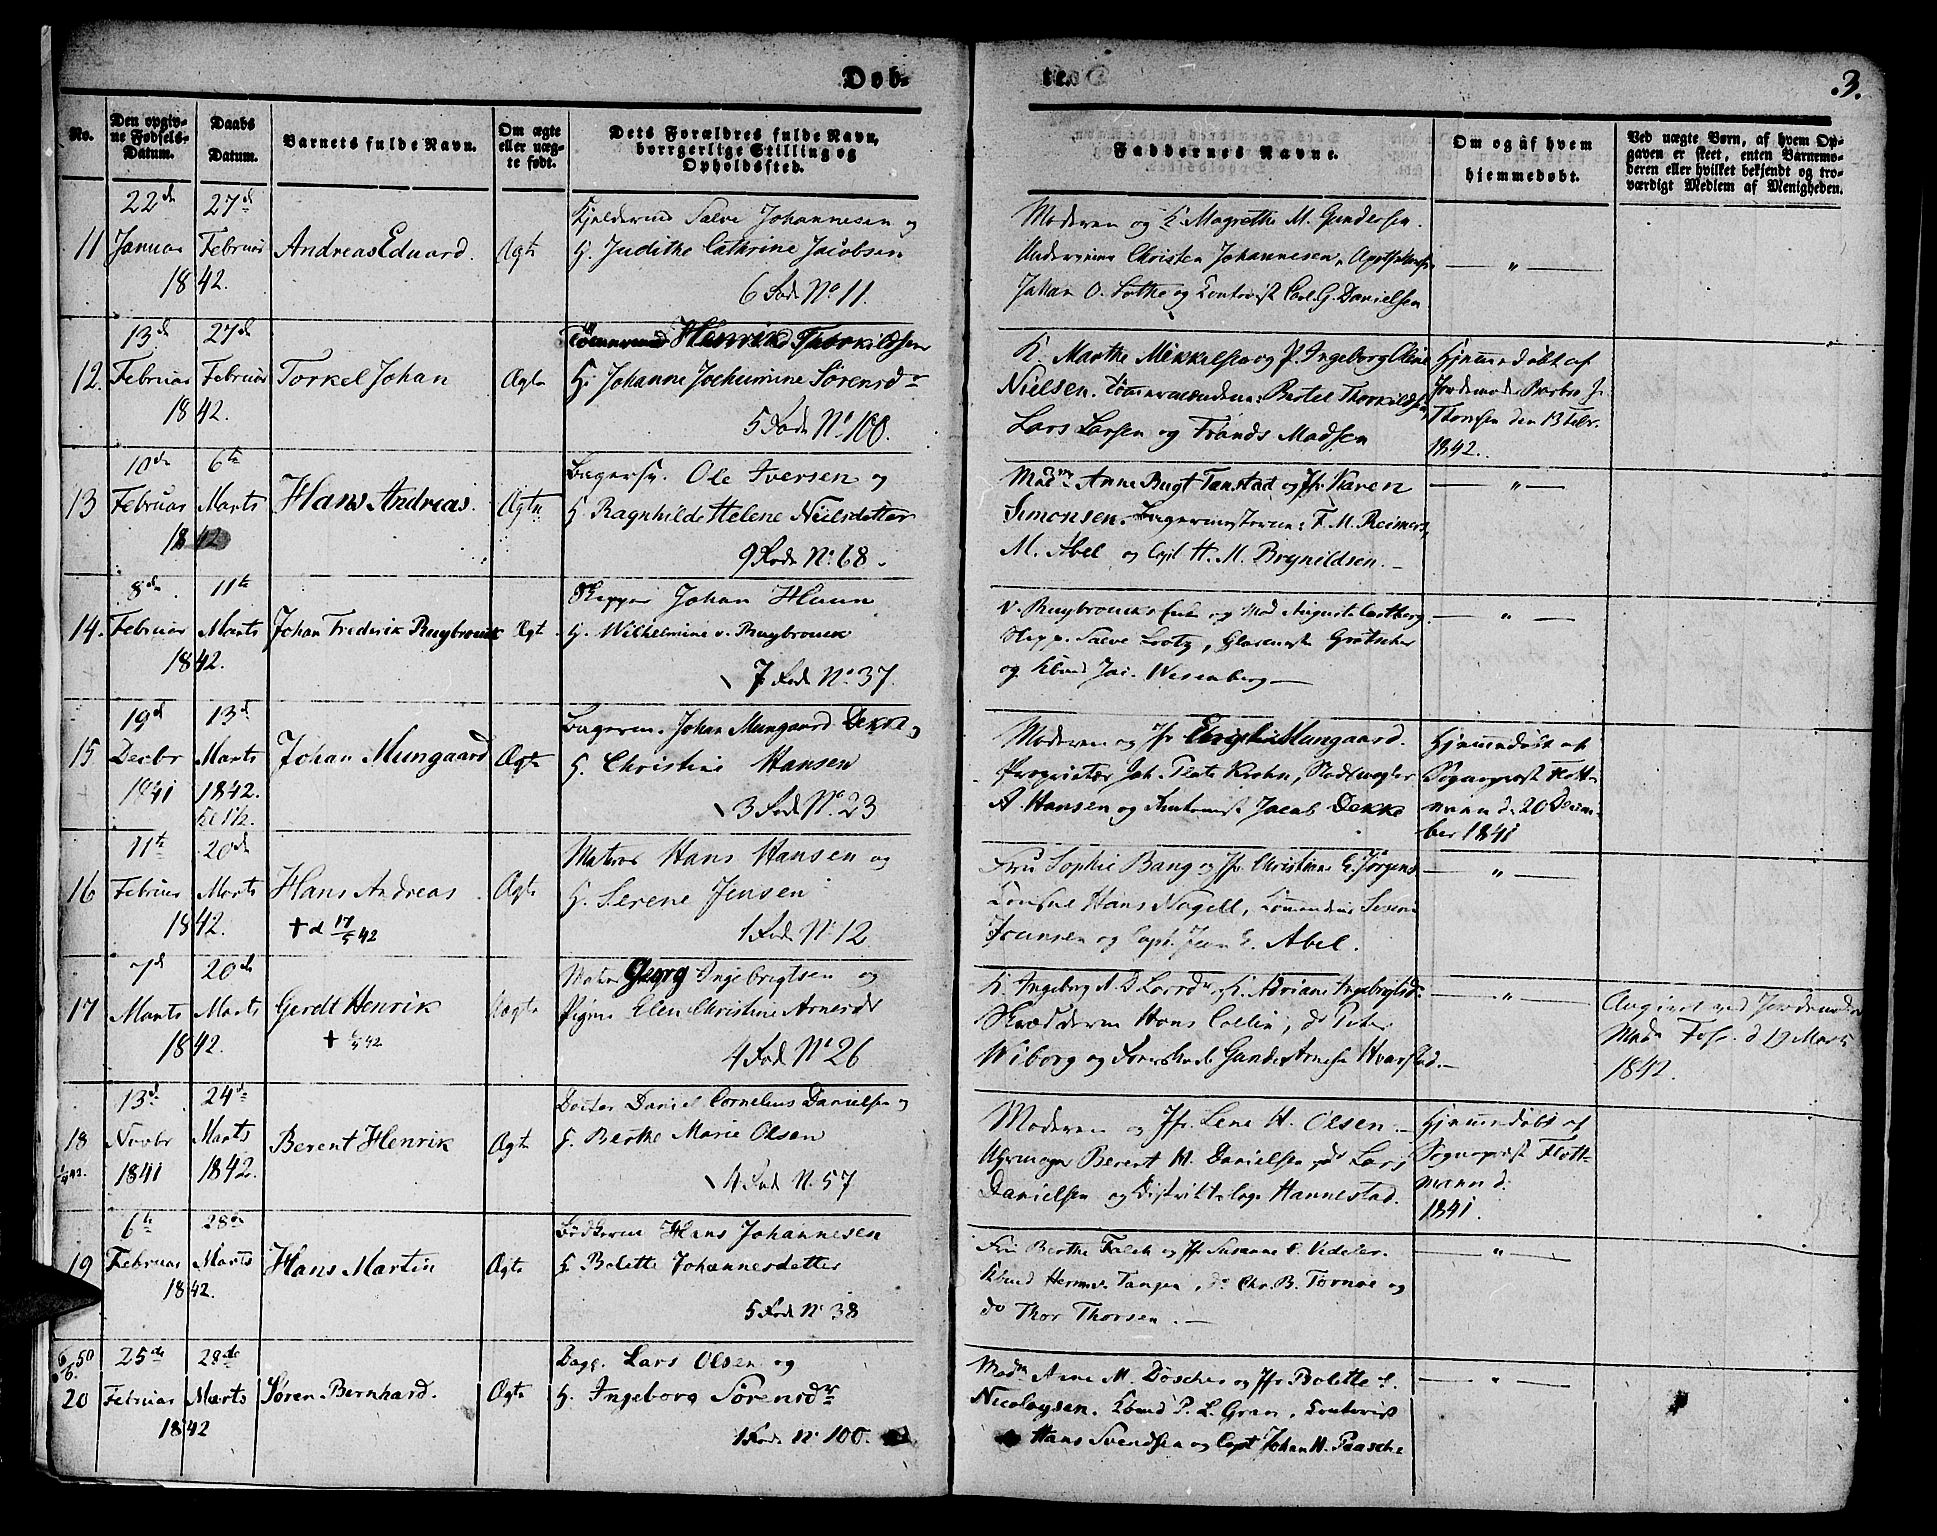 Døb-
te.
3.
No.
Den opgiv-
ne Fødsels-
Datum.
Daabs
Datum.
Barnets fulde Navn.
Om ægte
eller uæg-
te født.
Dets Forældres fulde Navn,
borrgerlige Stilling og
Opholdssted.
Faddernes Navne.
Om og af hvem
hjemmedøbt.
Ved uægte Børn, af hvem Op-
gaven er skeet, enten Barnemo-
deren eller hvilket bekjendt og tro-
værdigt Medlem af Menigheden.
11
22de
Januar
1842.
27de
Februar
Andreas Eduard.
Ægte
Salve Johannesen og
H. Judithe Cathrine Jacobsen
6 Rode No. 11.
Moderen og K. Magrethe M. Gundersen.
Christen Johannesen,
Johan O. Lothe og Contorist Carl G. Danielsen
— " —
12.
13de
Februar
1842.
27de
Februar
Torkel Johan
Ægte
Tømmermd Henrik Thorkildsen
H. Johanne Jochumine Sørensdr
5 Rode No. 100.
K. Marthe Mikkelsen og P. Ingeborg Oline
Nielsen. Tømmermændene: Bertel Thorkildsen
Lars Larsen og Frands Madsen
Hjemmedøbt af
Jordemoder Barbro J.
Thorsen den 13 Febr.
1842.
13
10de
Februar
1842
6te
Marts
Hans Andreas.
Ægte
Bagersv. Ole Iversen og
H. Ragnhilde Helene Nielsdatter
9 Rode No. 68.
Madm Anne Bugt Tanstad og Jfr Karen
Simonsen. Bagermestrene: F. M. Reimers,
M. Abel og Capt H. M. Brynildsen.
— " —
14.
8de
Februar
1842.
11te
Marts
Johan Frederik Ruybrouck
Ægt.
Skipper Johan Huun
H. Wilhelmine v. Ruybrouck
7 Rode No. 37.
v. Ruybrouck's Enke og Mad Auguste Castberg.
Skipp. Salve Lootz, Glarmest Grotscher
og Kbmd Jac. Wesenberg —
— " —
15
19de
Decbr
1841
13de
Marts
1842.
Kl 1½.
Johan Mungaard
Ægte
Johan Mungaard Dekke,
H. Christine Hansen
3 Rode No. 23
Moderen og Jfr Engel Mungaard.
Proprietær Joh. Platt Krohn, Stadsmægler
A. Hansen og Jacob Dekke
Hjemmedøbt af
Sognepræst Flott-
mann d. 20 Decem-
ber 1841
16
11te
Februar
1842.
20de
Marts
Hans Andreas
† d 17/5 42
Ægte
Matros Hans Hansen og
H. Serene Jensen
1 Rode No. 12
Fru Sophie Bang og Jfr Christiane E. Jørgens
Consul Hans Nagell,
Fransen og Capt. Jean E. Abel.
— " —
17
7de
Marts
1842.
20de
Marts
Gerdt Henrik
Uægte
Matros Georg Ingebrigtsen og
Pigen Elen Christine Arnesdr
4 Rode No. 26
K. Ingeborg A. D. Larsdr, K. Adriane Ingebrigtsdr
Skrædderne Hans Collin, do Peter
Wiborg og Gunder Arnesen Hvarstad.
— " —
Angivet ved Jordemoder
Madm d 19 Marts
1842.
18
13de
Novbr
1841
24de
Marts
1842.
Berent Henrik
Ægte
Doctor Daniel Cornelius Danielsen og
H. Berthe Marie Olsen
4 Rode No. 57
Moderen og Jfr. Lene H. Olsen.
Uhrmager Berent H. Danielsen, do Lars
Danielsen og Distriktslæge Hannestad.
Hjemmedøbt af
Sognepræst Flott-
mann d.
1841.
19
6te
Februar
1842.
28de
Marts
Hans Martin
Ægte
Bødkersv Hans Johannesen
H. Bolette Johannesdatter
5 Rode No. 38
Fru Berthe Falch og Jfr Susanne C. Vedeler.
Kbmd Herman Tangen, do Chr. B. Tornøe og
do Thor Thorsen. —
— " —
20
25de
Februar
1842
28de
Marts
Søren Bernhard.
Ægte
Dagk. Lars Olsen og
H. Ingeborg Sørensdr
1 Rode No. 100.
Madm Anne M. Döscher og Jfr Bolette C.
Nicolaysen. Kbmd P. L. Gran, Contorist
Hans Svendsen og Capt Johan H. Paasche
— " —